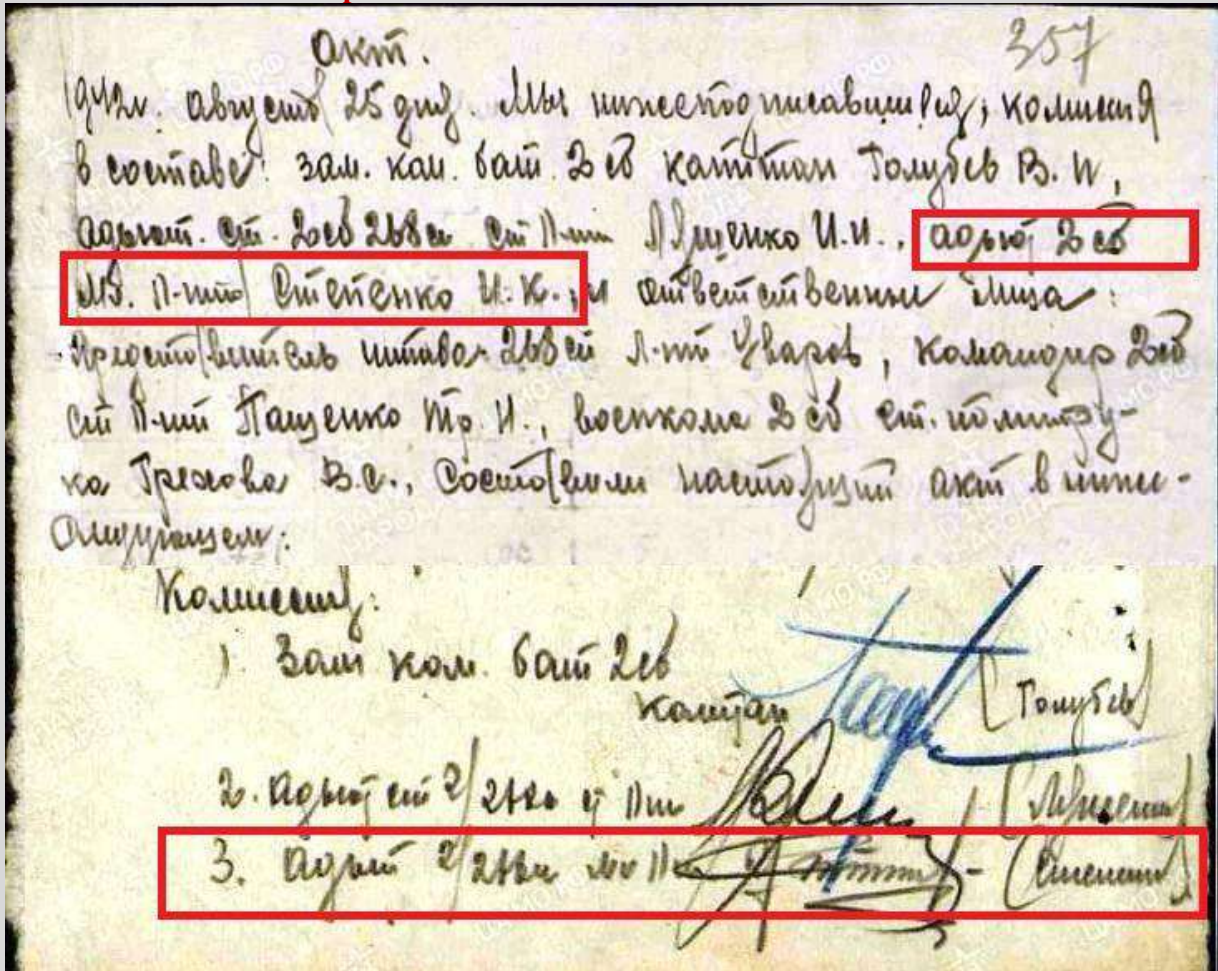 357
Акт.
1942г. августа 25 дня. Мы нижеподписавшиеся, комиссия
в составе: зам. ком. бат. 2 сб капитан Голубев В. И,
адъют. ст. 2сб 268 сп ст л-нт И.И., адъют 2 сб
мл. л-нт Степенко И.К., и ответственные лица:
Представитель штаба 268 сп л-нт Уваров, командир 2сб
ст л-нт Пащенко Тр. И., военкома 2 сб ст. политру-
ка Грехова В.С., составили настоящий акт в ниже-
следующем:
Комиссия:
1. Зам ком. бат 2сб
капитан (Голубев)
2. Адъют ст 2/268сп ст л-нт
3. Адъют 2/268сп мл л-нт - (Степенко)